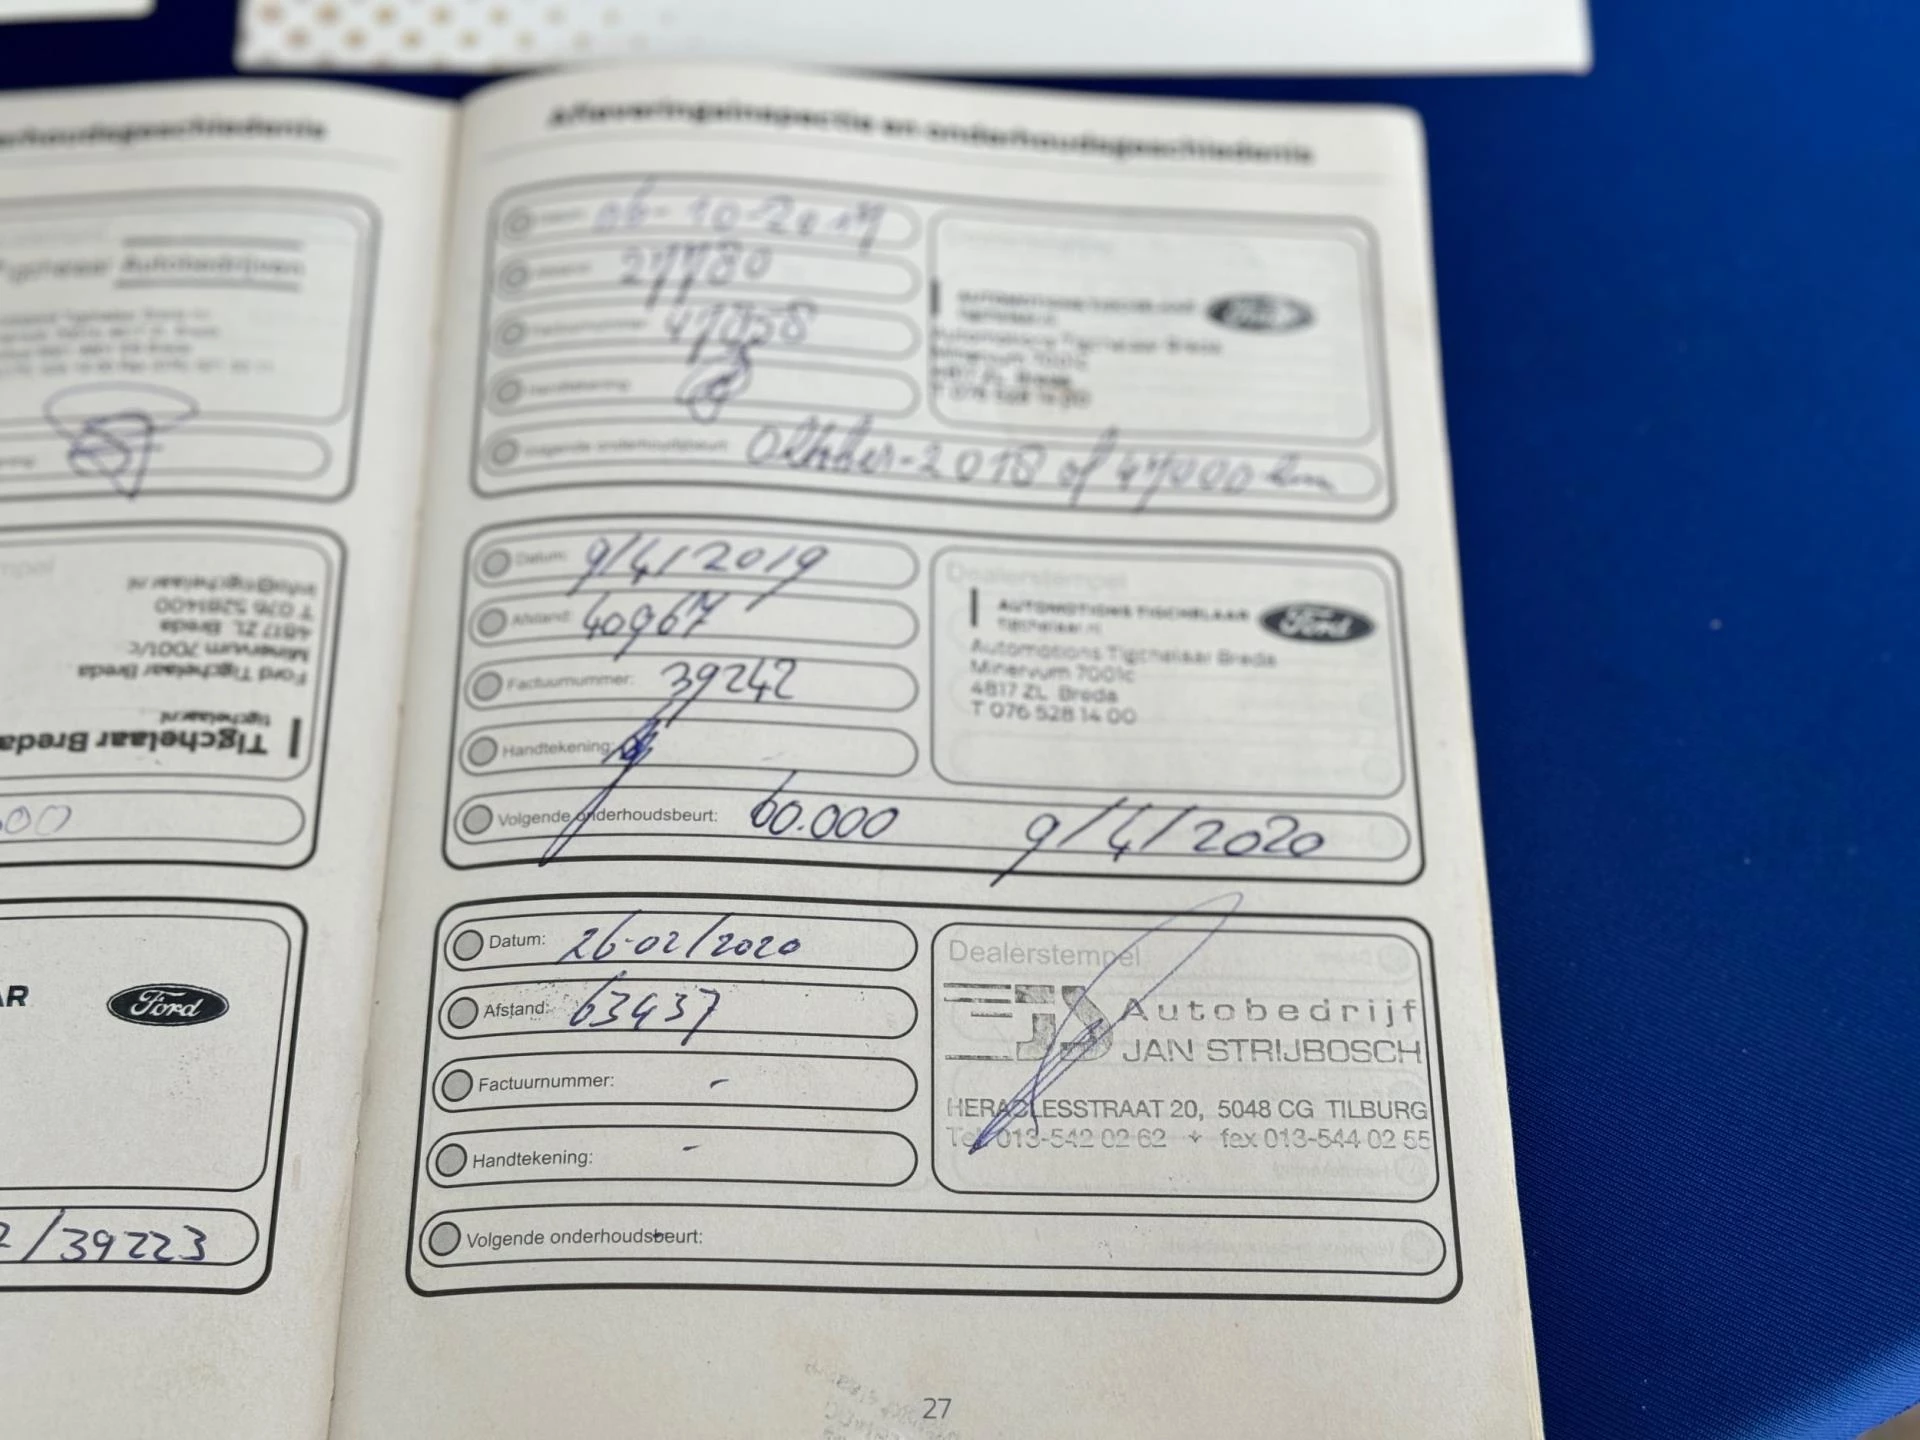 Tigchelaar Autobedrijven
info@tigchelaar.nl
T 076 5281400
4817 ZL Breda
Minervum 7001/c
Ford Tigchelaar Breda
tigchelaar.nl
Tigchelaar Breda
AR
Ford
/39223
Afleveringsinspectie en onderhoudsgeschiedenis
06-10-2017
27780
Factuurnummer: 47858
Handtekening:
Volgende onderhoudsbeurt: Oktober-2018 of 47000 km
Automotions Tigchelaar Breda
Minervum 7001c
4817 ZL Breda
T 076 528 14 00
Datum: 9/4/2019
Afstand: 40967
Factuurnummer: 39242
Handtekening:
Volgende onderhoudsbeurt: 60.000 9/4/2020
Dealerstempel
AUTOMOTIONS TIGCHELAAR
Tigchelaar.nl
Ford
Automotions Tigchelaar Breda
Minervum 7001c
4817 ZL Breda
T 076 528 14 00
Datum: 26-02/2020
Afstand: 63437
Factuurnummer: -
Handtekening: -
Volgende onderhoudsbeurt:
Dealerstempel
Autobedrijf
JAN STRIJBOSCH
HERACLESSTRAAT 20, 5048 CG TILBURG
Tel. 013-542 02 62 + fax 013-544 02 55
27